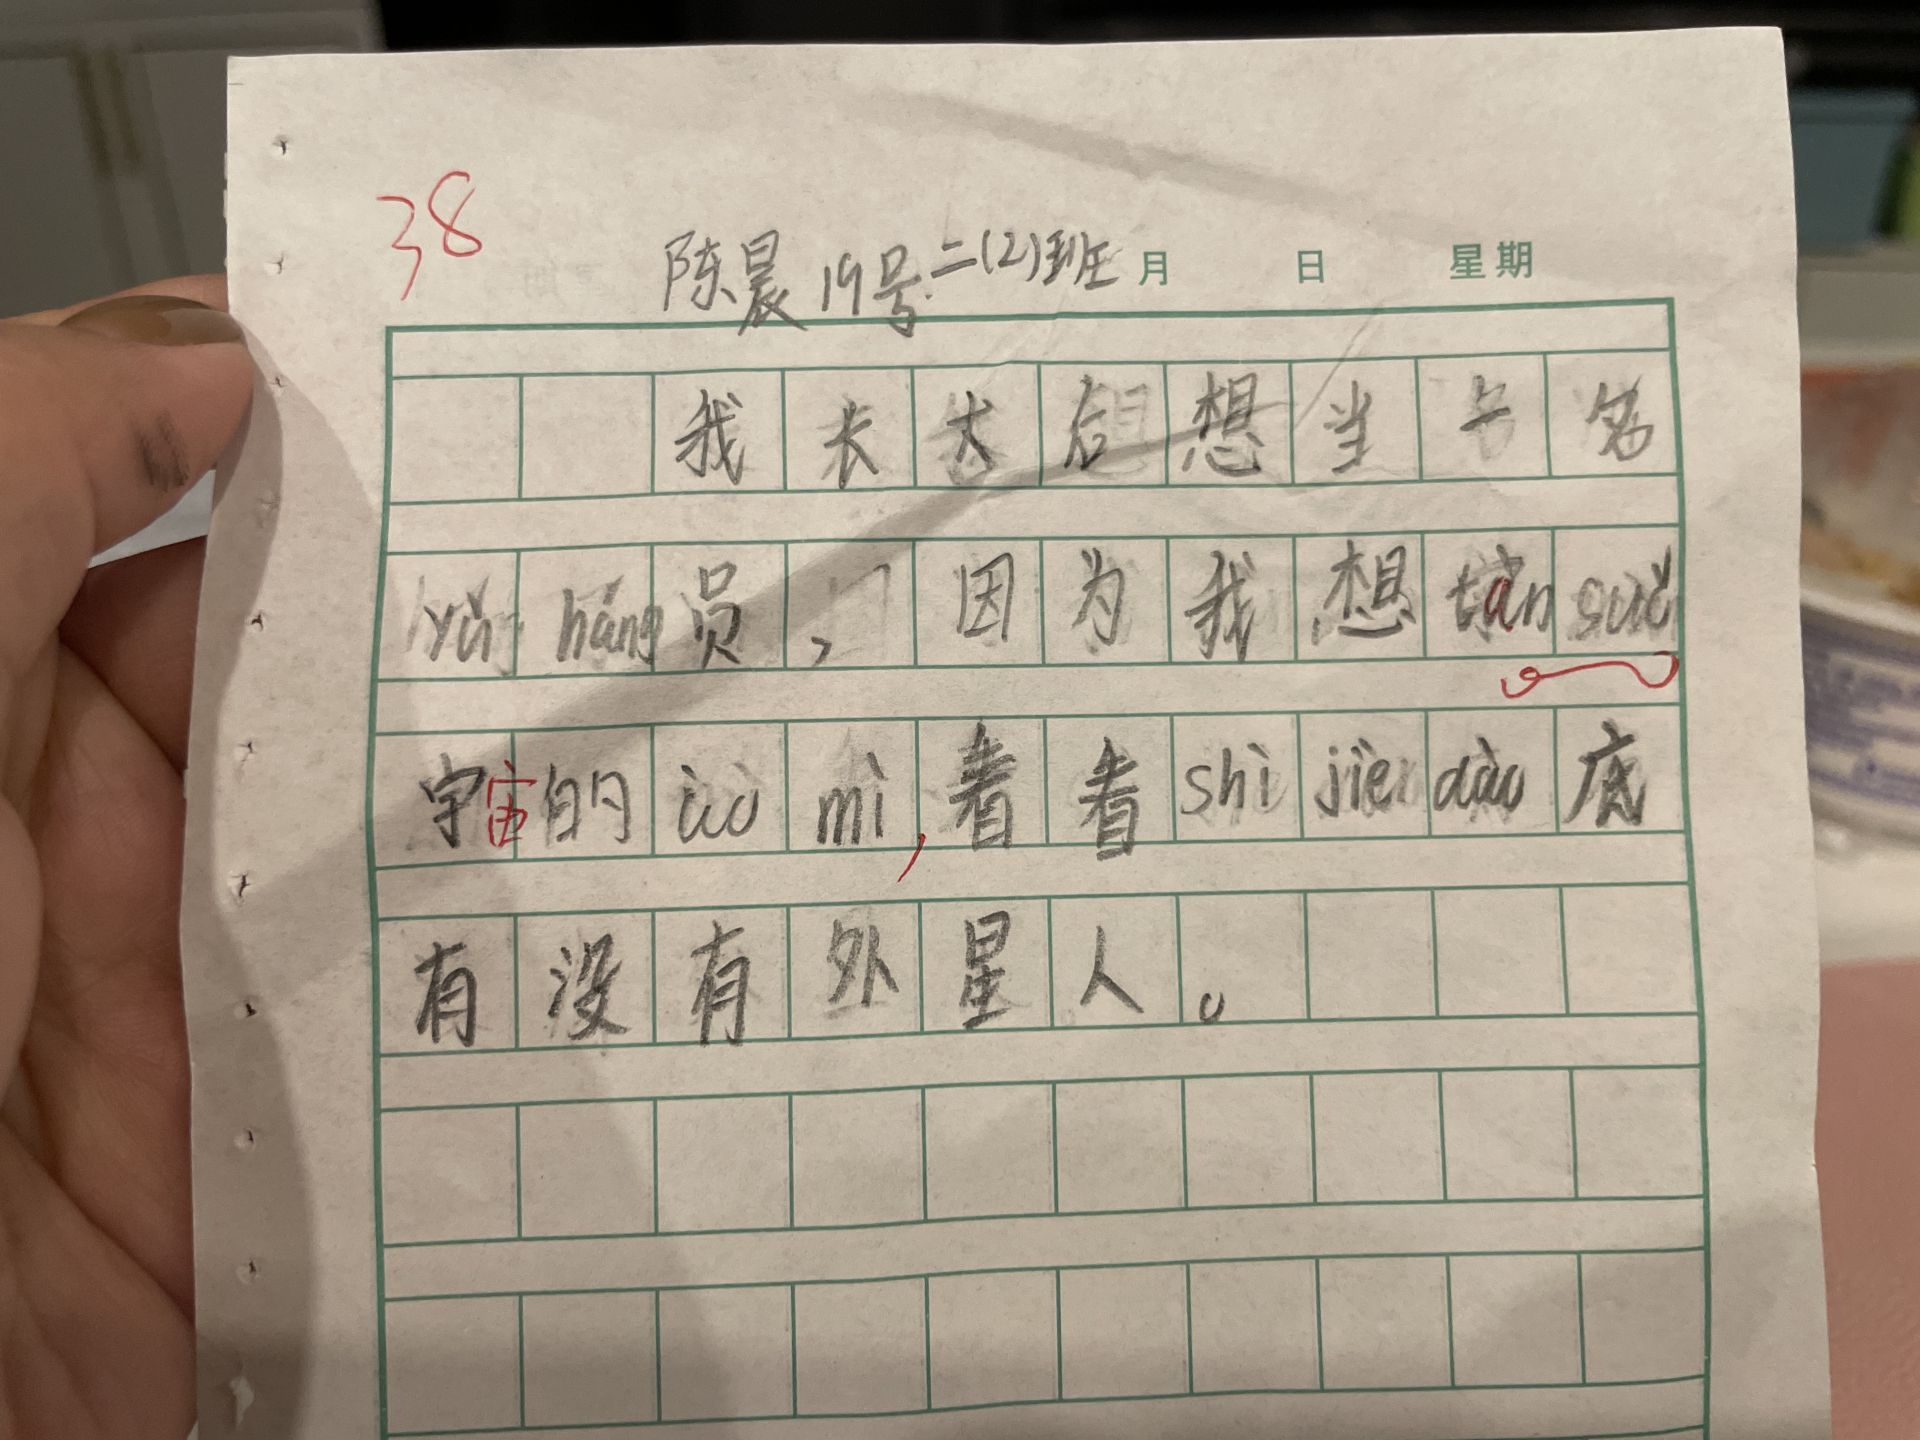 38
陈晨 19号 二(2)班 月 日 星期
我长大后想当一名
yǔ háng 员，因为我想 tàn suǒ
宇宙的 mì，看看 shì jiè dào 底
有没有外星人。